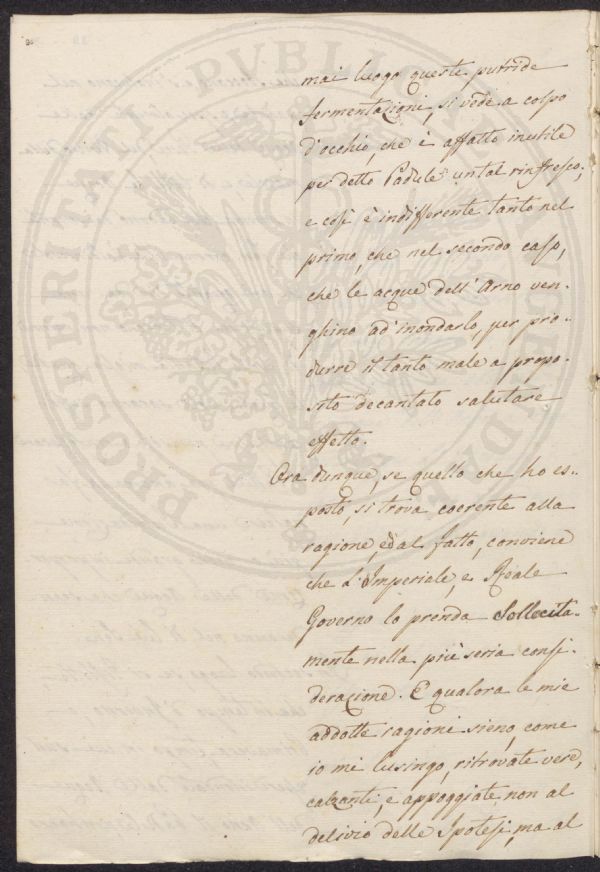 mai luogo queste putride
fermentazioni, si vede a colpo
d'occhio, che è affatto inutile
per detto Padule un tal rinfresco,
e così è indifferente tanto nel
primo, che nel secondo caso,
che le acque dell'Arno ven-
ghino ad'inondarlo, per pro-
durre il tanto male a propo-
sito decantato salutare
effetto.
Ora dunque, se quello che ho es-
posto, si trova coerente alla
ragione, ed al fatto, conviene
che L'Imperiale, e Reale
Governo lo prenda Sollecita-
mente nella più seria consi-
derazione. E qualora le mie
addotte ragioni sieno, come
io mi lusingo, ritrovate vere,
calzanti, e appoggiate, non al
delirio delle Ipotesi, ma al
PROSPERITATI PVBLICAE AVGENDAE